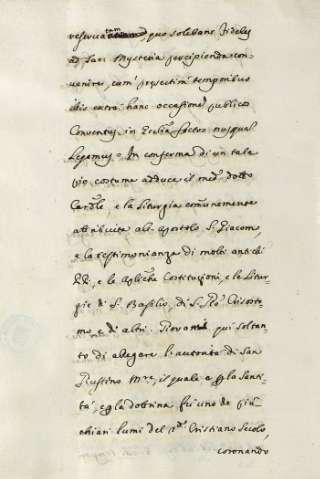 reservata tam, quo solebant Fideles
ad Sac: Mysteria percipienda con-
venire, cum præsertim temporibus
illis extra hanc occasionem publicos
Conventus in Ecclia factos nusquam
Legamus = In conferma di un tale
pio costume adduce il med.º dotto
Card.le e la Liturgia comunemente
attribuita all'Apostolo S. Giacomo,
e la testimonianza di molti antichi
PP., e le Costituzioni, e le Litur-
gie di S. Basilio, di S. Gio: Crisosto-
mo, e di altri. Giovami qui soltan-
to di allegare l'autorità di San
Giustino M.re, il quale e p la Santi-
tà, e p la dottrina fu uno de più
chiari lumi del Cristiano Secolo,
coronando